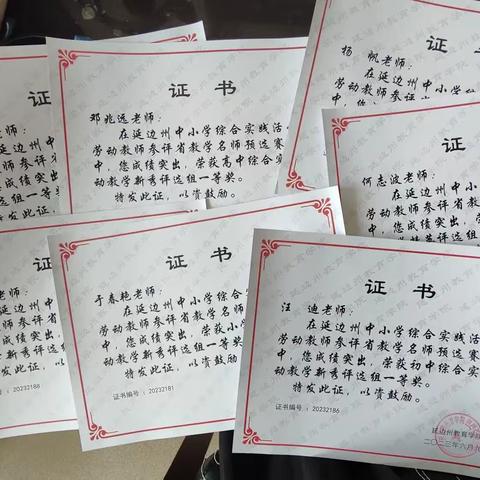 证书
邓兆远老师：
在延边州中小学综合实践活
劳动教师参评省教学名师预选赛
中，您成绩突出，荣获高中综合实
动教学新秀评选组一等奖。
特发此证，以资鼓励。
证书
杨 帆老师：
在延边州中小
劳动教师参评
证
何志波老师：
在延边州中小
劳动教师参评省
中，您成绩突
特发此证，
证
师：
延边州中小学
教师参评省教
您成绩突出，
学新秀评选组
发此证，以资
证
老师：
延边州中小
教师参评省
成绩突出
20232188
证书
于春艳老师：
在延边州中小学综合实
劳动教师参评省教学名师
中，您成绩突出，荣获小
动教学新秀评选组一等奖
特发此证，以资鼓励
证书编号：20232181
证书
汪 迪老师：
在延边州中小学综合实践活
劳动教师参评省教学名师预选赛
中，您成绩突出，荣获初中综合实
动教学新秀评选组一等奖。
特发此证，以资鼓励。
证书编号：20232186
延边州教育学院
二〇二三年六月